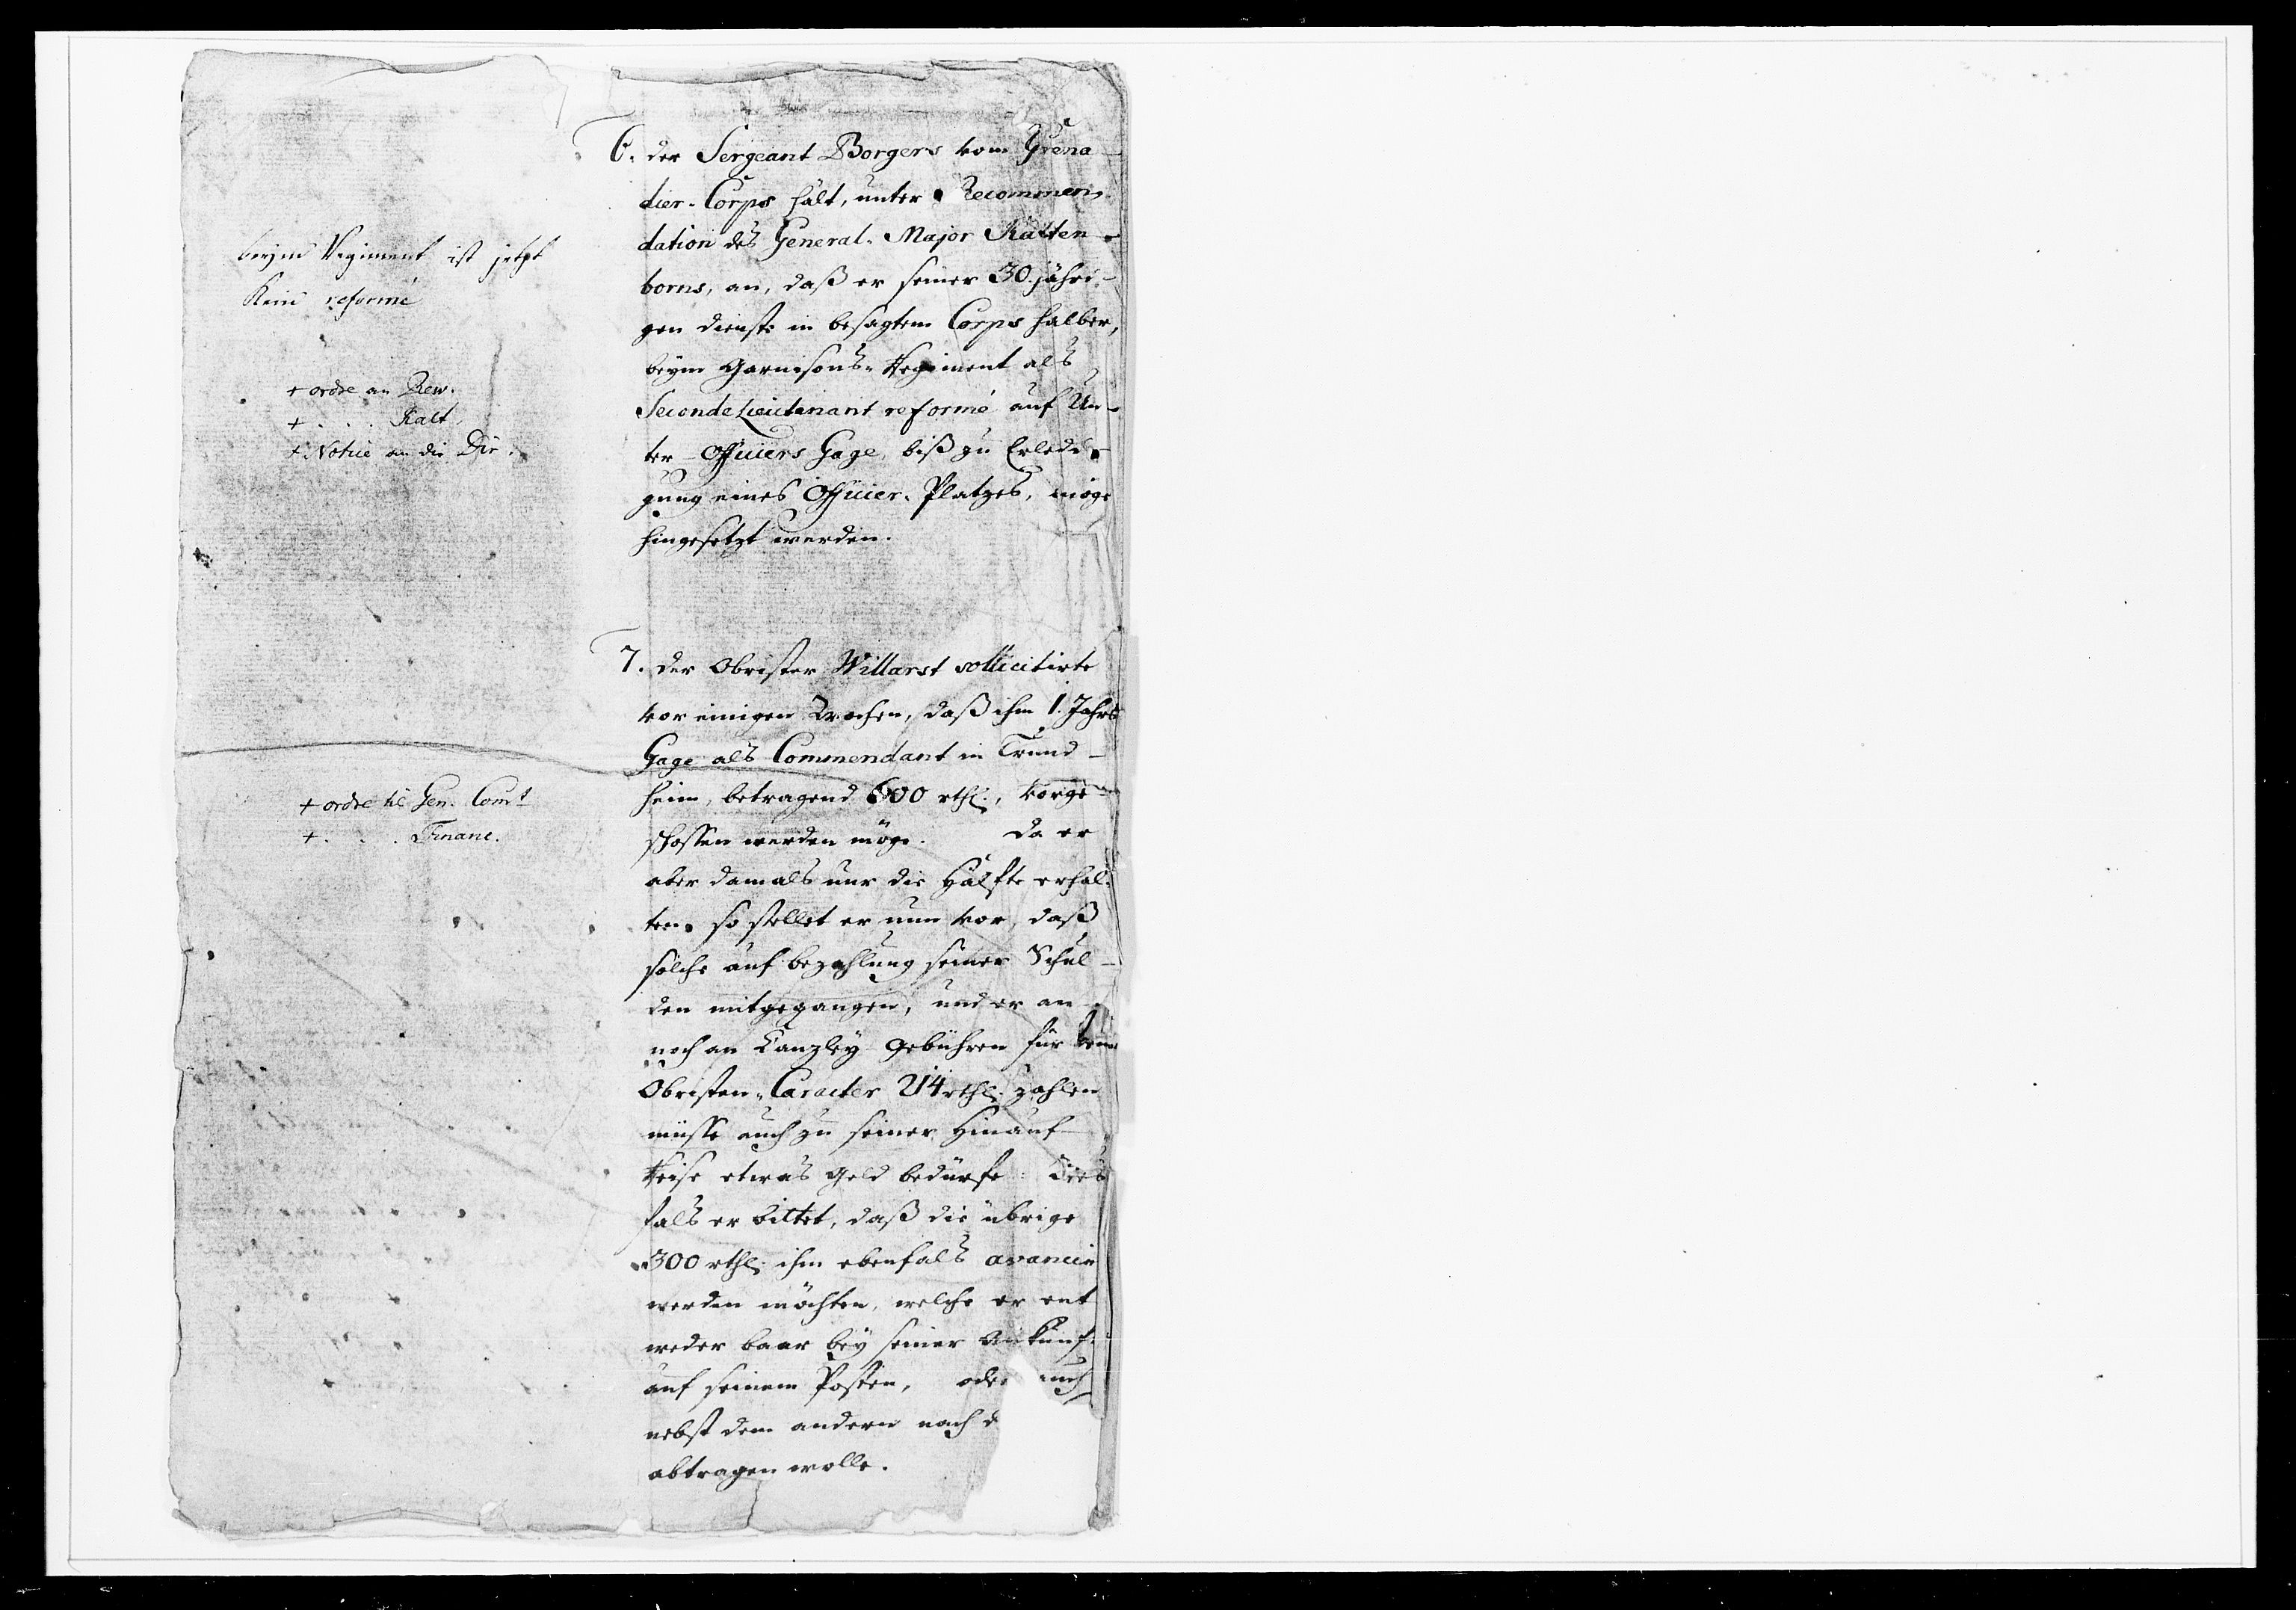 6. der Sergeant Borgers vom Grena-
dier-Corps hält, unter Recommen,
dation des General-Major Kalten-
borns, an, daß er seiner 30. jähri-
gen dienste in besagtem Corps halber,
beym Garnisons-Regiment als
Seconde Lieutenant reformé auf Un-
ter-Officiers Gage, biß zu Erledi-
gung eines Officier-Platzes, möge
hingesetzt werden.
beym Regiment ist jetzt
Kein reformé
+ ordre an Rew.
+ . . . Kalt.
+ Notice an die Dir.
7. der Obrister Willarst sollicitirte
vor einigen Wochen, daß ihm 1. Jahrs
Gage als Commendant in Trund-
heim, betragend 600 rthl., vorge-
schossen werden möge. Da er
aber damals nur die Hälfte erhal-
ten, so stellet er nun vor, daß
solche auf bezahlung seiner Schul-
den mitgegangen, und er an-
noch an Canzley-Gebühren für
Obristen-Caracter 214 rthl. zahlen
müsse auch zu seiner Hinauf-
Reise etwas Geld bedürfe: Dies
fals er bittet, daß die übrige
300 rthl. ihm ebenfals avancir
werden möchten, welche er ent
weder baar bey seiner Ankunf
auf seinem Posten, oder auch
nebst dem andern nach d
abtragen wolle.
+ ordre til Gen. Comt
+ . . . Financ.